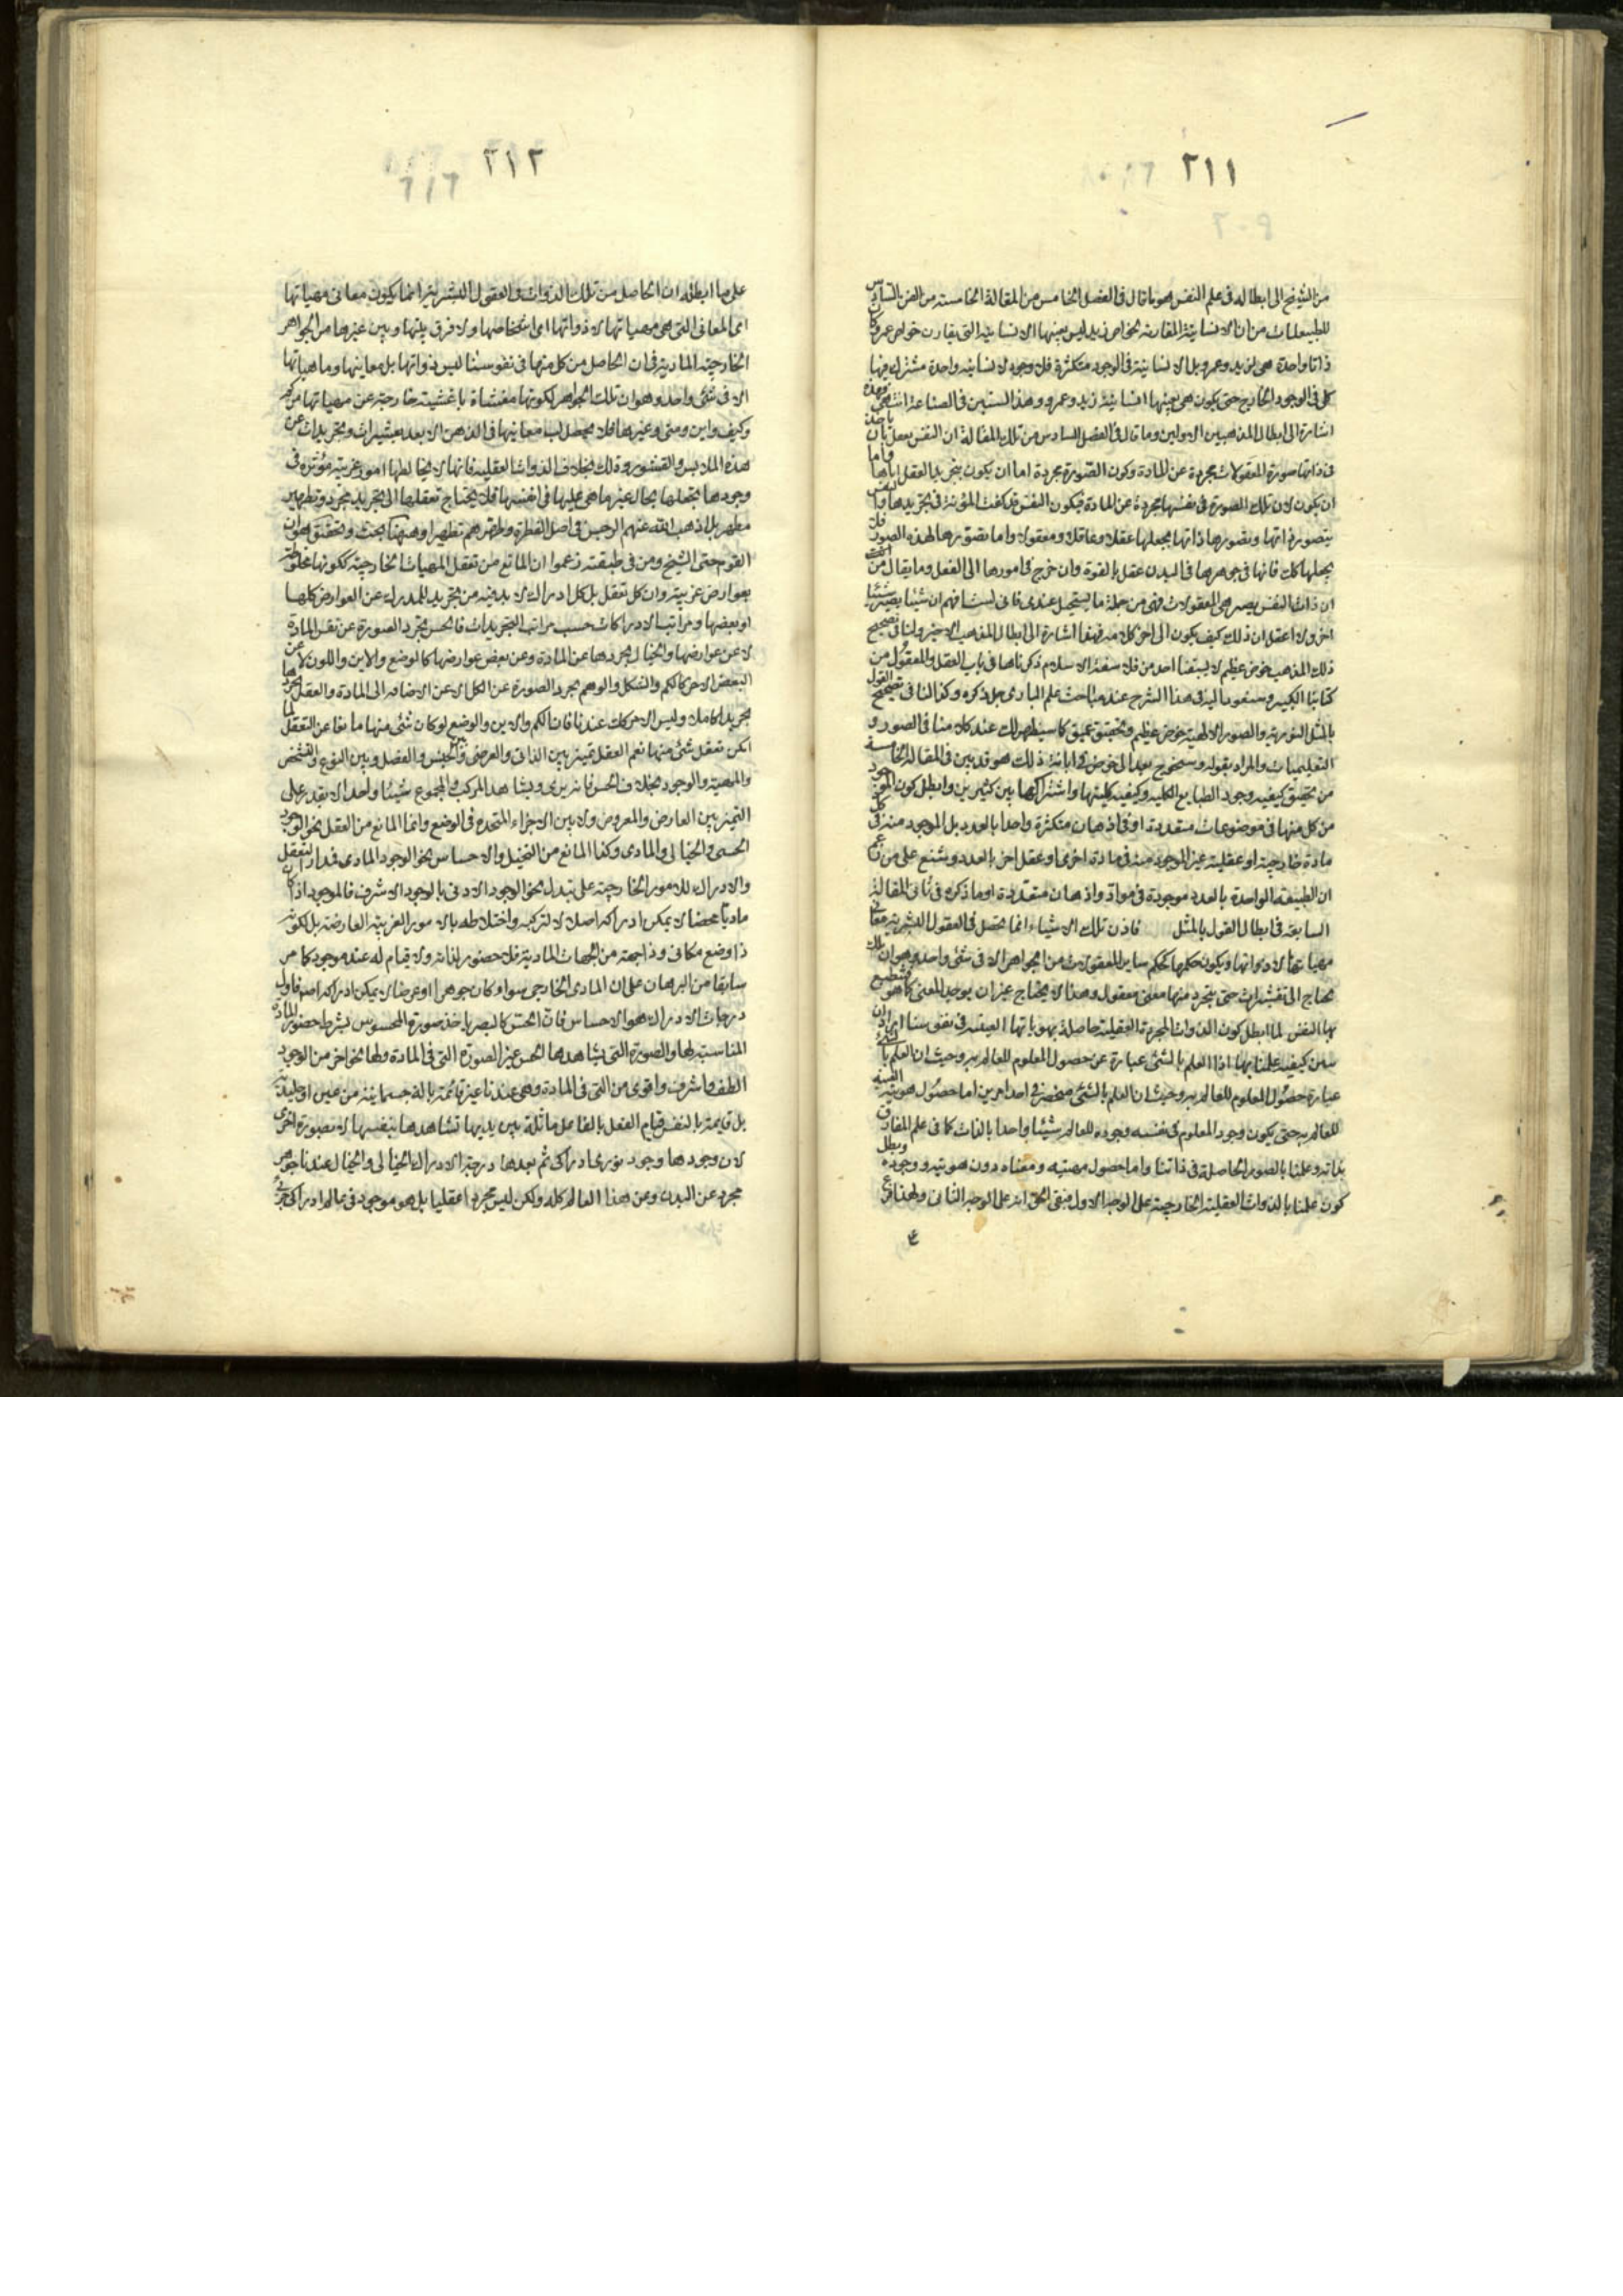 ٢١١
من الشيخ الى ابطاله فى علم النفس هو ما قال فى الفصل الخامس من المقالة الخامسة من الفن السادس
للطبيعيات من ان الانسانية المقارنة لخواص زيد ليس بعينها الانسانية التى يقارن خواص عمرو كان
ذاتا واحدة هى لزيد وعمرو بل الانسانية فى الوجود متكثرة فلا وجود لانسانية واحدة مشترك فيها
كل فى الوجود الخارج حتى يكون هى بعينها انسانية زيد وعمرو وهذا يستبين فى الصناعة انتهى وهذه
اشارة الى ابطال المذهبين الاولين وما قال فى الفصل السادس من تلك المقالة ان النفس يعقل بان ياخذ
فى ذاتها صورة المعقولات مجردة عن المادة وكون الصورة مجردة اما ان يكون بتجريد العقل اياها واما
ان يكون لان تلك الصورة فى نفسها مجردة عن المادة فيكون النفس قد كفت المؤنة فى تجريدها والنفس
يتصور ذاتها وتصورها ذاتها يجعلها عقلا وعاقلا ومعقولا واما تصورها لهذه الصور فلا
يجعلها كك فانها فى جوهرها فى البدن عقل بالقوة وان خرج فى امورها الى الفعل وما يقال من
ان ذات النفس يصير هى المعقولات فهى من جملة ما يستحيل عندى فانى لست افهم ان شيئا يصير شيئا
اخر ولا اعقل ان ذلك كيف يكون الى اخر كلامه فهذا اشارة الى ابطال المذهب الاخير ولنا فى تصحيح
ذلك المذهب خوض عظيم لا يسبقنا احد من فلاسفة الاسلام ذكرناها فى باب العقل والمعقول من
كتابنا الكبير وسنعود اليه فى هذا الشرح عند مباحث علم البارى جل ذكره وكذا لنا فى تصحيح القول
بالمثل النورية والصور الالهية خوض عظيم وتحقيق عميق كما سيظهر لك عند كلامنا فى الصور و
التعليميات والمراد بقوله وسنخوض بعد الخوض فى ابانة ذلك هو قد بين فى المقالة الخامسة
من تحقق كيفية وجود الطبايع الكلية وكيفية كليتها واشتراكها بين كثيرين وابطل كون الموجود
من كل منها فى موضوعات متعددة او فى اذهان متكثرة واحدا بالعدد بل الموجود منه فى كل
مادة خارجية او عقلية غير الموجود منه فى مادة اخرى او عقل اخر بالعدد وشنع على من زعم
ان الطبيعة الواحدة بالعدد موجودة فى مواد واذهان متعددة او ما ذكره فى ثانى المقالة
السابعة فى ابطال القول بالمثل فاذن تلك الاشياء انما تحصل فى العقول البشرية معانى
مهياتها لا ذواتها ويكون حكمها كحكم ساير المعقولات من الجواهر الا فى شئ واحد وهو ان تلك
يحتاج الى تقشيرات حتى يتجرد منها معنى معقول وهذا لا يحتاج غير ان يوجد المعنى كما هو فتنطبع
بها النفس لما ابطل كون الذوات المجردة العقلية حاصلة بهوياتها العينية فى نفوسنا
عبارة حصول المعلوم للعالم به وحيث ان العلم بالشئ منحصر فى احد امرين اما حصول هويته العينية
للعالم به حتى يكون وجود المعلوم فى نفسه وجوده للعالم شيئا واحدا بالذات كما فى علم المفارق
بذاته وعلمنا بالصور الحاصلة فى ذاتنا واما حصول مهيته ومعناه دون هويته ووجوده وبطل
كون علمنا بالذوات العقلية الخارجية على الوجه الاول فبقى الحق انه على الوجه الثانى ولهذا فرع
٢١٢
على ما ابطله ان الحاصل من تلك الذوات فى العقول البشرية انما يكون معانى مهياتها
اى المعانى التى هى مهياتها لا ذواتها اى اشخاصها ولا فرق بينها وبين غيرها من الجواهر
الخارجية المادية فى ان الحاصل من كل منها فى نفوسنا ليس ذواتها بل معاينها وماهياتها
الا فى شئ واحد وهو ان تلك الجواهر لكونها مغشاة باغشية خارجية عن مهياتها من كم
وكيف واين ومتى وغيرها فلا يحصل لب معانيها فى الذهن الا بعد تقشيرات وتجريدات عن
هذه الملابس والقشور وذلك بخلاف الذوات العقلية فانها لا يخالطها امور غريبة مؤثرة فى
وجودها يجعلها بحال غير ما هى عليها فى انفسها فلا يحتاج تعقلها الى تجريد مجرد وتطهير
مطهر بل اذهب الله عنهم الرجس فى اصل الفطرة وطهرهم تطهيرا وههنا بحث وتحقيق هو ان
القوم حتى الشيخ ومن فى طبقته زعموا ان المانع من تعقل المهيات الخارجية ككونها مخلوطة
بعوارض غريبة وان كل تعقل بل كل ادراك لا بد فيه من تجريد للمدرك عن العوارض كلها
او بعضها ومراتب الادراكات حسب مراتب التجريدات فالحس تجرد الصورة عن نفس المادة
لا عن عوارضها والخيال يجردها عن المادة وعن بعض عوارضها كالوضع والاين واللون لا عن
البعض الاخر كالكم والشكل والوهم يجرد الصورة عن الكل الا عن الاضافة الى المادة والعقل يجردها
تجريدا كاملا وليس الامر كك عندنا فان الكم والاين والوضع لو كان شئ منها مانعا عن التعقل لما
امكن تعقل شئ منها نعم العقل تميز بين الذاتى والعرضى وبين الجنس والفصل وبين النوع والتشخص
والمهية والوجود بخلاف الحس فانه يرى ويشاهد المركب والمجموع شيئا واحدا لا يقدر على
التميز بين العارض والمعروض ولا بين الاجزاء المتحده فى الوضع وانما المانع من العقل نحو الوجود
الحسى والخيالى والمادى وكذا المانع من التخيل والاحساس نحو الوجود المادى فمدار التعقل
والادراك للامور الخارجية على تبدل نحو الوجود الادنى بالوجود الاشرف فالموجود اذا كان
ماديا محضا لا يمكن ادراكه اصلا لا لتركبه واختلاطه بالامور الغريبة العارضة بل لكونه
ذا وضع مكانى وذا جهة من الجهات المادية فلا حضور لذاته ولا قيام له عند موجود كما مر
سابقا من البرهان على ان المادى الخارجى سواء كان جوهرا او عرضا لا يمكن ادراكه اصلا فاول
درجات الادراك هو الاحساس فان الحس كالبصر ياخذ صورة المحسوس بشرط حضور المادة
المناسبة لها والصورة التى يشاهدها الحس غير الصورة التى فى المادة ولها نحو اخر من الوجود
الطف واشرف واقوى من التى فى المادة وهى عندنا غير قائمة بالة جسمانية من عين او جليدية
بل قايمة بالنفس قيام الفعل بالفاعل ماثلة بين يديها تشاهدها بنفسها لا بصورة اخرى
لان وجودها وجود نورى ادراكى ثم بعدها درجة الادراك الخيالى والخيال عندنا جوهر
مجرد عن البدن وعن هذا العالم كله ولكن ليس مجردا عقليا بل هو موجود فى عالم ادراكى جزئى